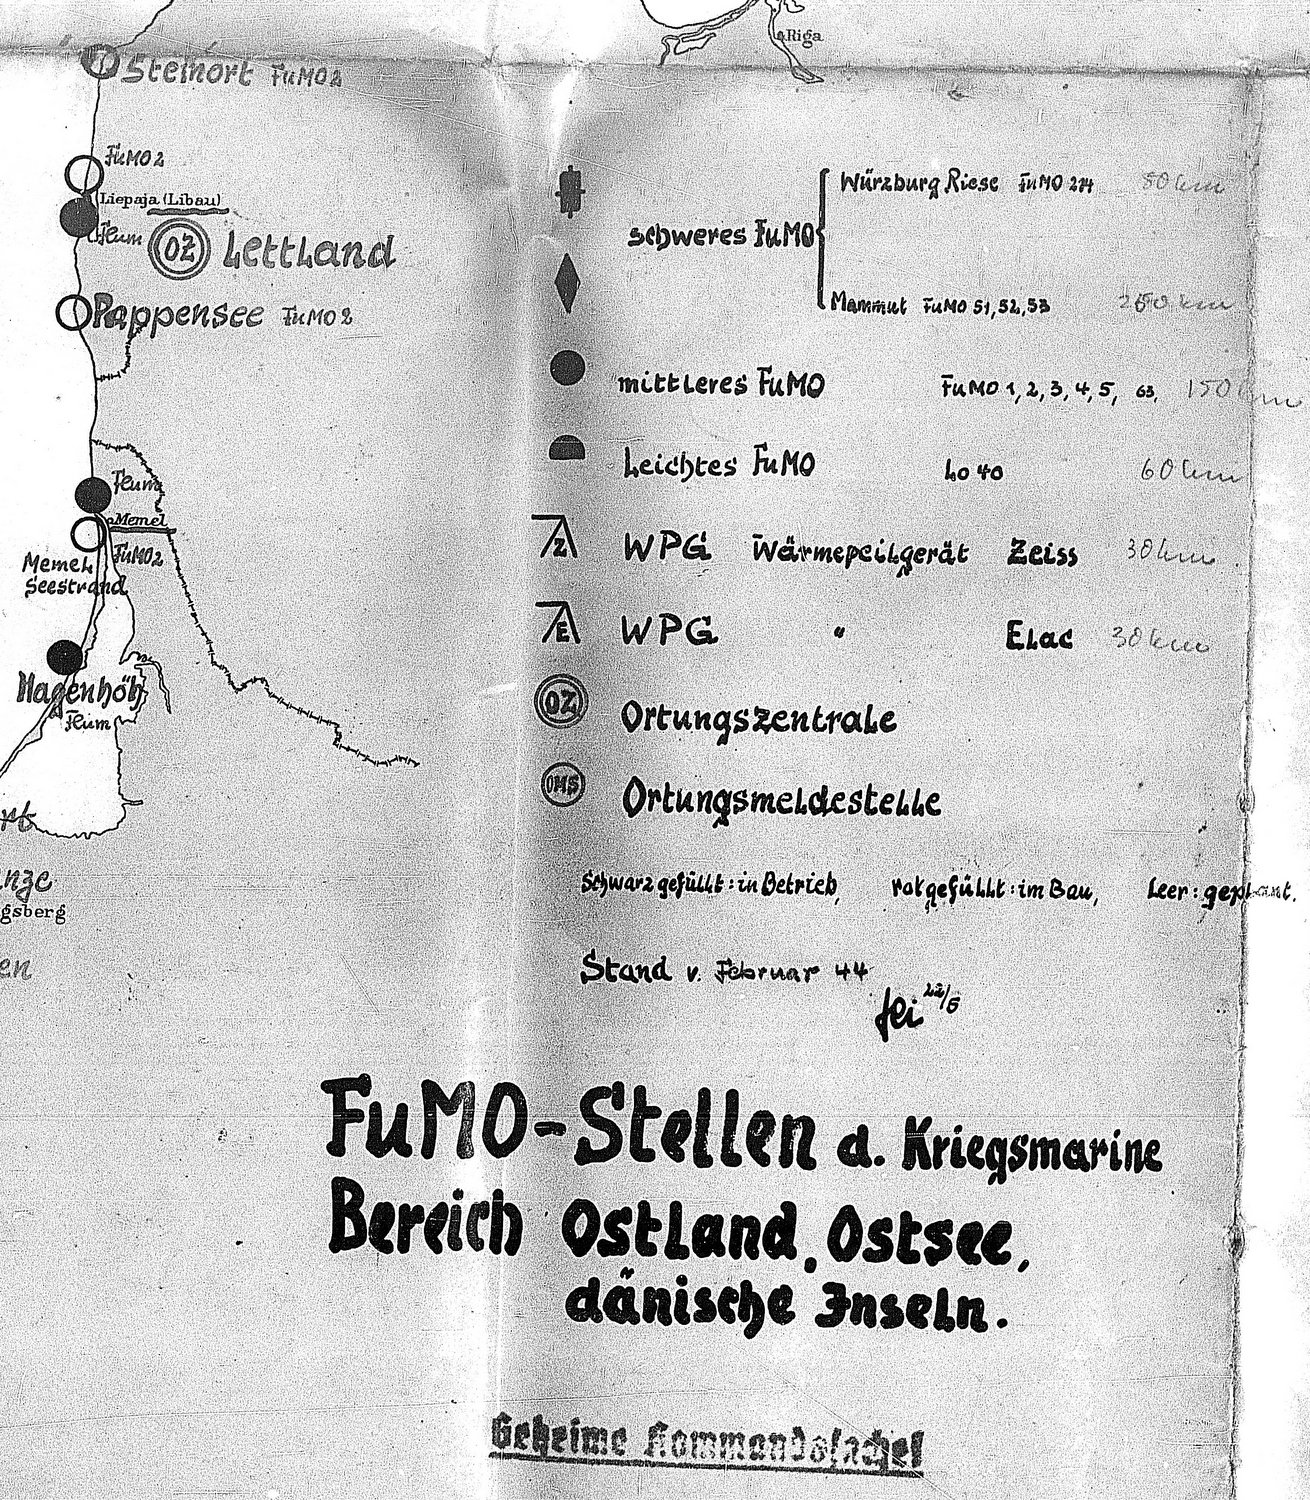 Riga
Steinort FuMO2
FuMO2
Liepaja (Libau)
Flum
OZ Lettland
Pappensee FuMO2
Flum
Memel
FuMO2
Memel
Seestrand
Hagenhöh
Flum
gsberg
en
schweres FuMO
Würzburg Riese FuMO 214 80 km
Mammut FuMO 51, 52, 53 km
mittleres FuMO FuMO 1, 2, 3, 4, 5, 63, 150 km
Leichtes FuMO Lo 40 60 km
Z WPG Wärmepeilgerät Zeiss 30 km
E WPG " Elac 30 km
OZ Ortungszentrale
OMS Ortungsmeldestelle
Schwarz gefüllt: in Betrieb, rot gefüllt: im Bau, Leer: geplant.
Stand v. Februar 44
22/5
FuMO-Stellen d. Kriegsmarine
Bereich Ostland, Ostsee,
dänische Inseln.
Geheime Kommandosache!